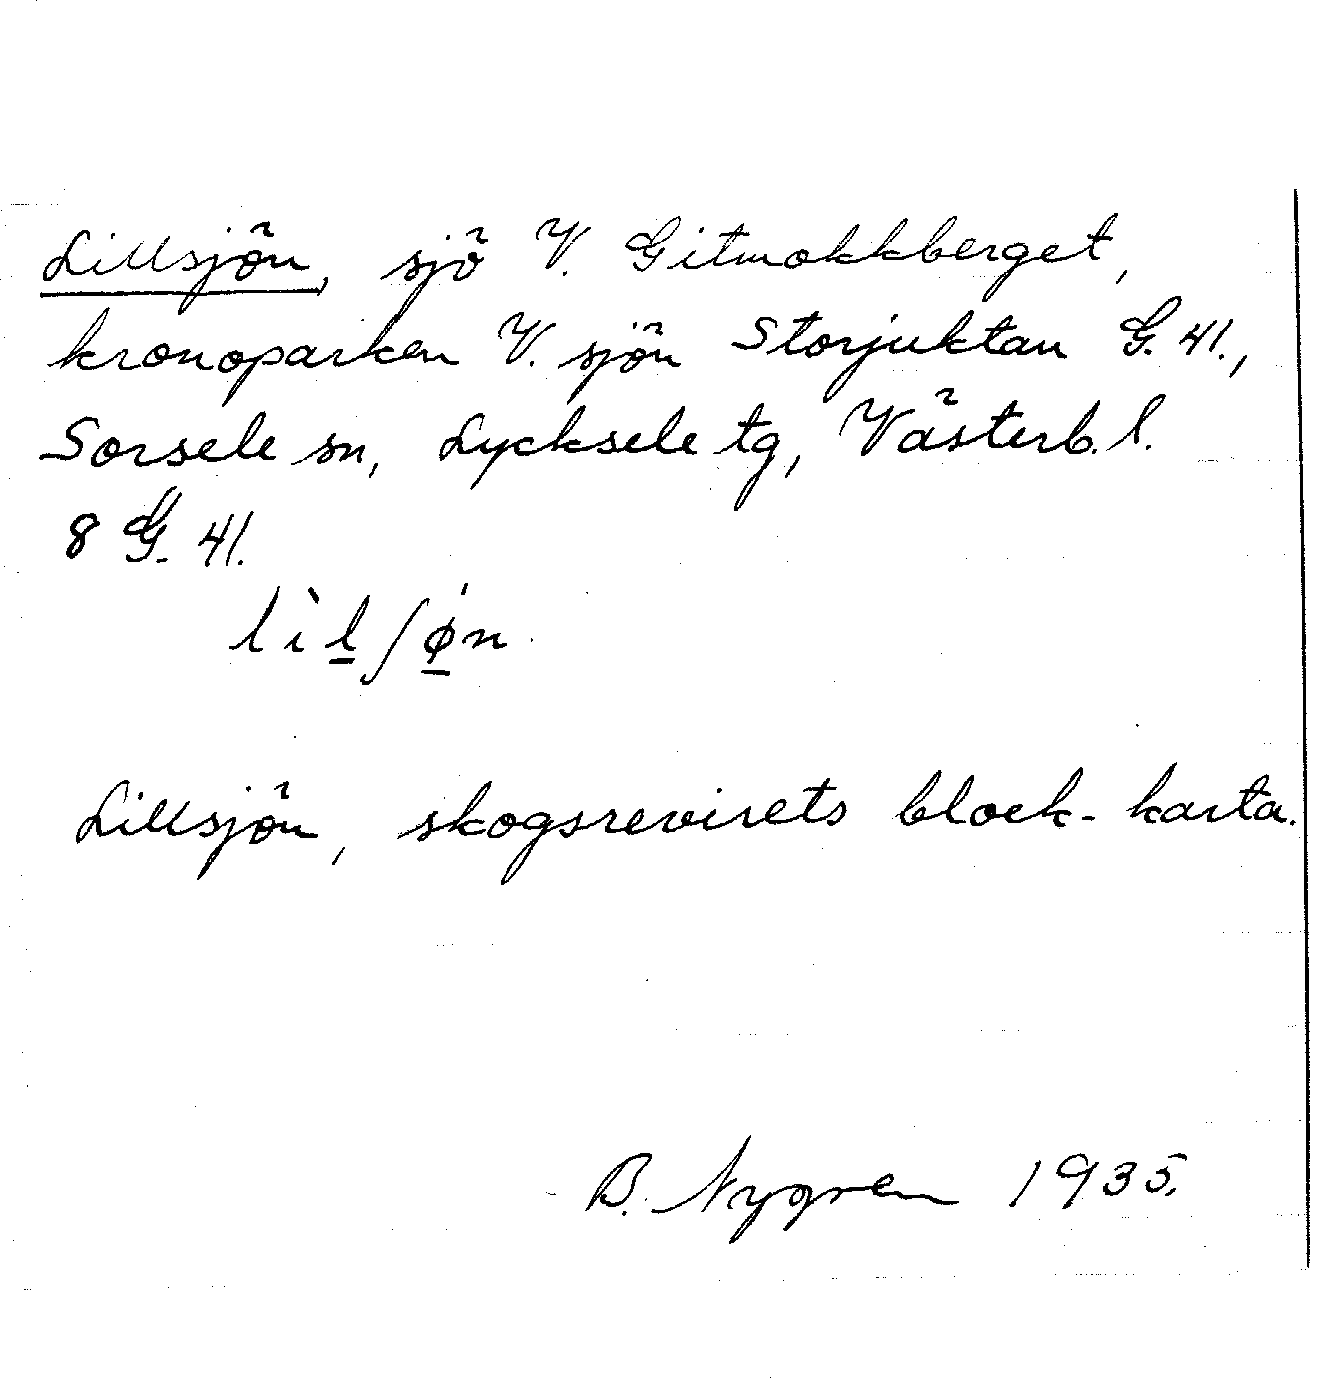 Lillsjön, sjö V. Gitmokkberget,
kronoparken V. sjön Storjuktan G. 41.,
Sorsele sn, Lycksele tg, Västerb. l.
8 G. 41.
lìlʃøn
Lillsjön, skogsrevirets block-karta.
B. Nygren 1935.